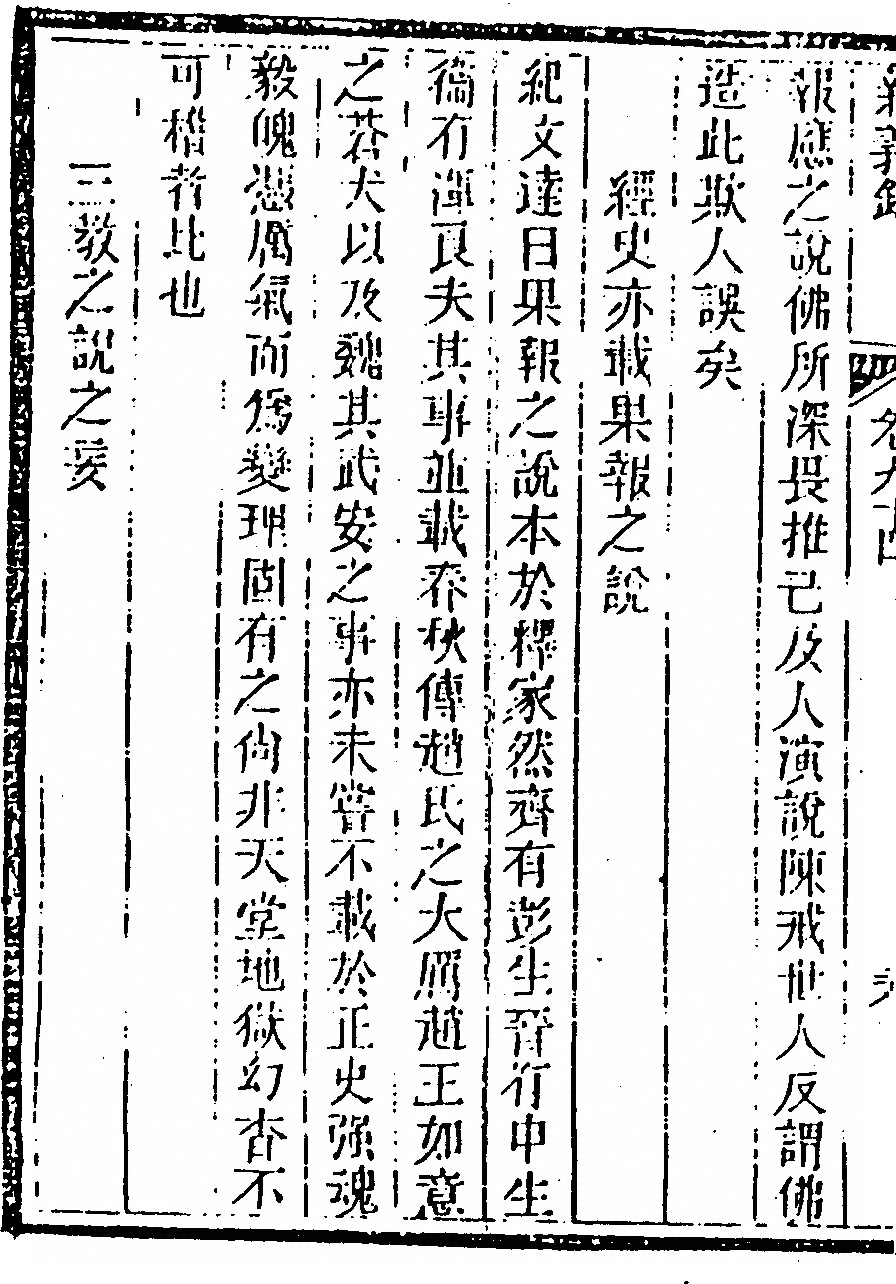 報應之說佛所深畏推己及人演說陳戒世人反謂佛
造此欺人誤矣
經史亦載果報之說
紀文達曰果報之說本於釋家然齊有彭生晉有申生
衞有渾良夫其事並載春秋傳趙氏之大厲趙王如意
之蒼犬以及魏其武安之事亦未嘗不載於正史强魂
毅魄憑厲氣而爲變理固有之尙非天堂地獄幻杳不
可稽者比也
三教之說之妄